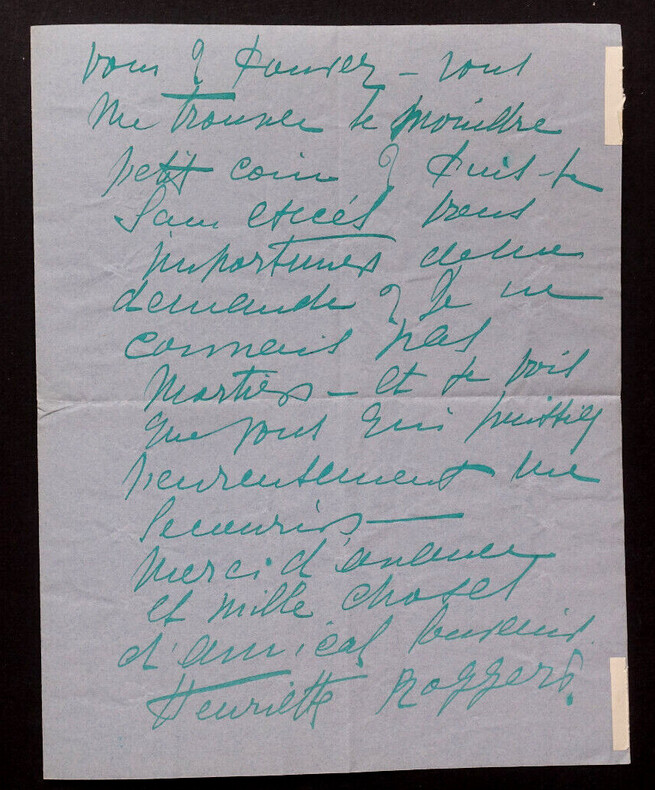 vous q pouvez – vous
me trouver le moindre
petit coin q puis-je
sans excès vous
importuner de ma
demande q Je ne
connais pas
Mortier – et je vois
que vous qui puissiez
heureusement me
secourir –
Merci d'avance
et mille choses
d'amical souvenir.
Henriette Roggers.